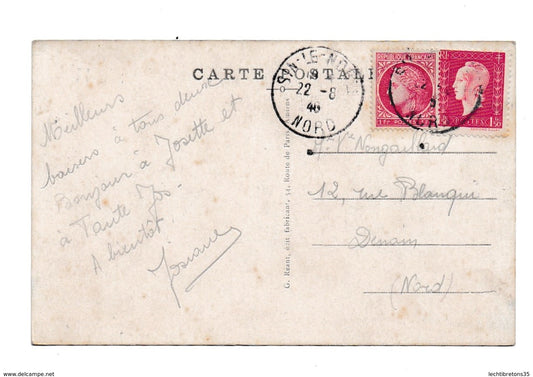 CARTE POSTALE
SIN-LE-NOBLE
22 -8
46
NORD
RF
1 F. POSTES
RF
1f50
Meilleurs
baisers à tous deux
Bonjour à Josette et
à Tante Jos-
A bientôt
Josiane
G. Réant, édit fabricant, 54, Route de Paris, Amiens
12, rue Blanqui
Denain
(Nord)
delcampe.net
lechtibretons35